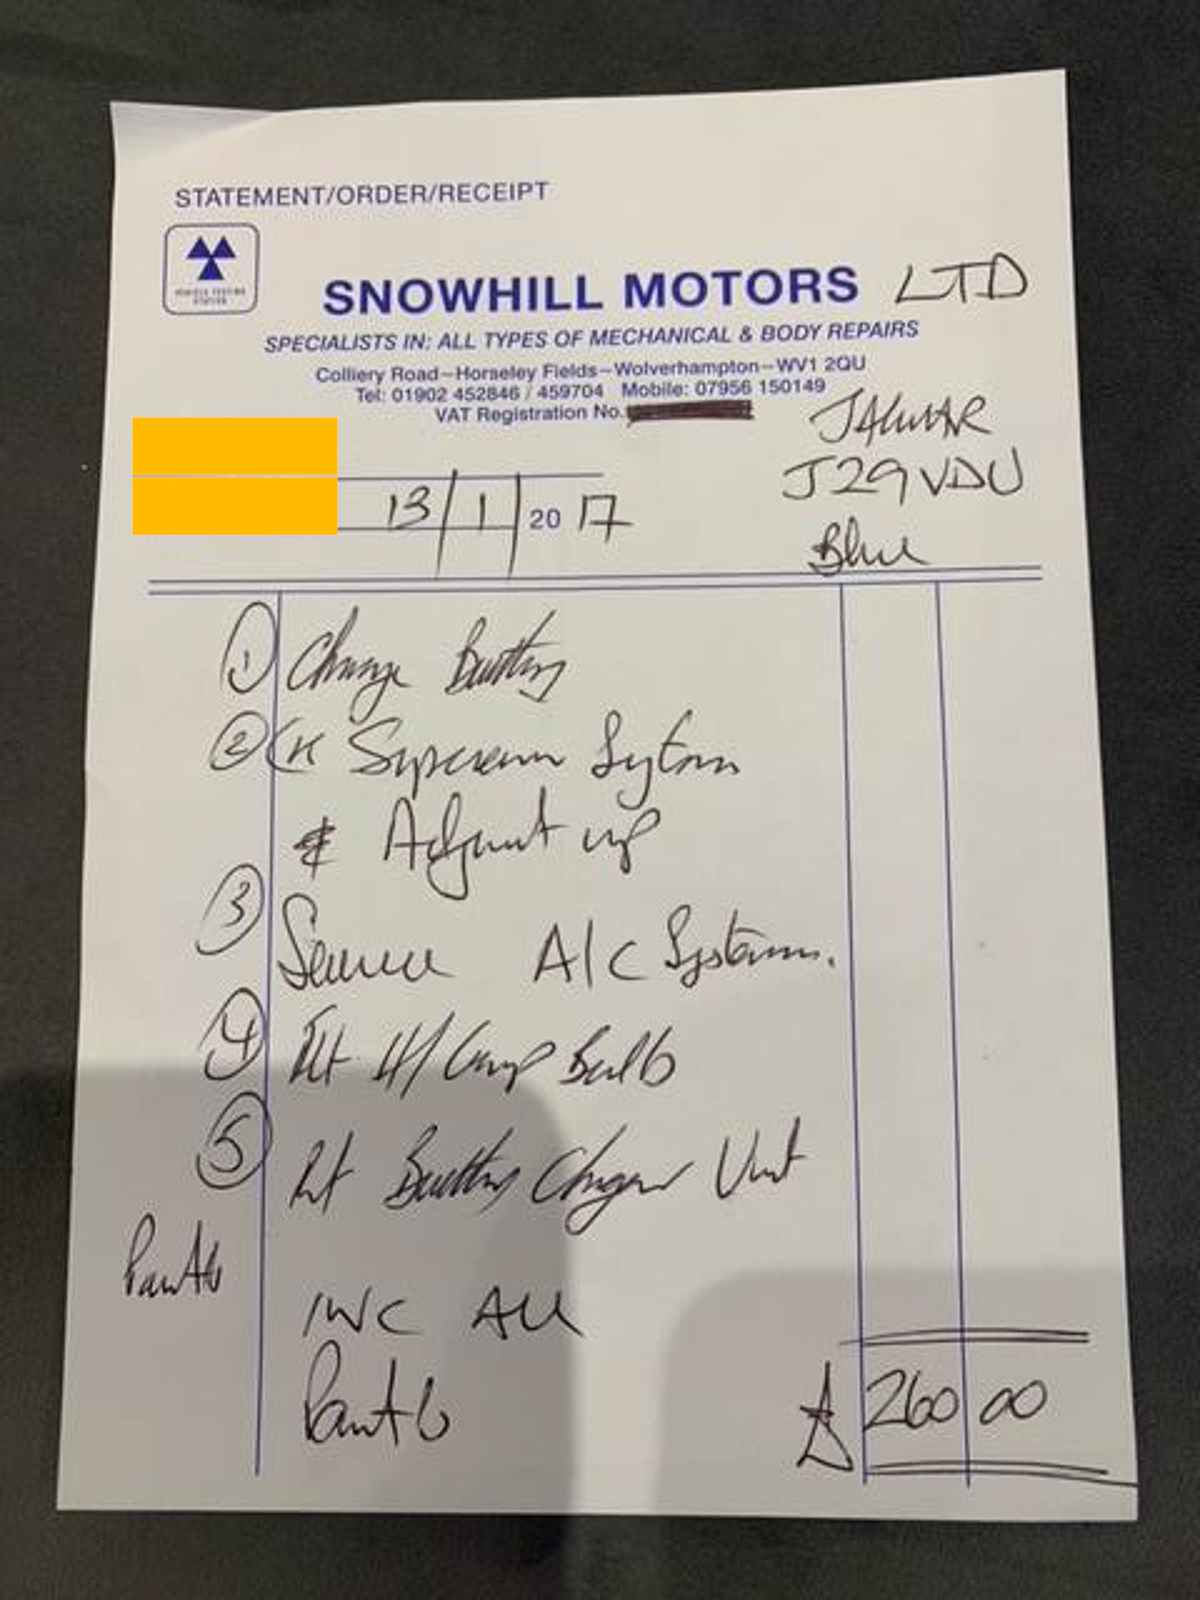 STATEMENT/ORDER/RECEIPT
VEHICLE TESTING
STATION
SNOWHILL MOTORS LTD
SPECIALISTS IN: ALL TYPES OF MECHANICAL & BODY REPAIRS
Colliery Road–Horseley Fields–Wolverhampton–WV1 2QU
Tel: 01902 452846 / 459704 Mobile: 07956 150149
VAT Registration No.
JAGUAR
J29 VDU
13/1/2017
Blue
① Change Battery
② CK System
& Adjust up
③ Service A/C Systems.
④ H/Lamp Bulb
⑤ Battery Charger Unit
Parts
INC All
Parts
£ 260 00